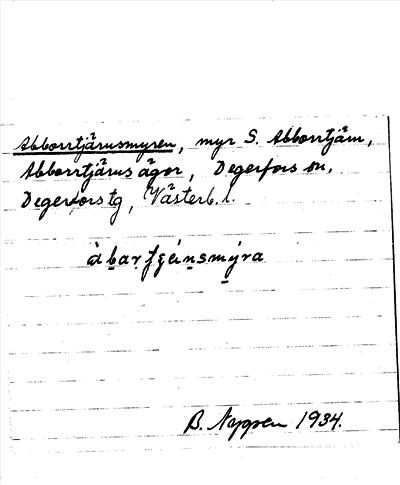 Abborrtjärnsmyren, myr S. Abborrtjärn,
Abborrtjärns ägor, Degerfors sn,
Degerfors tg, Västerb. l.
B. Nygren 1934.